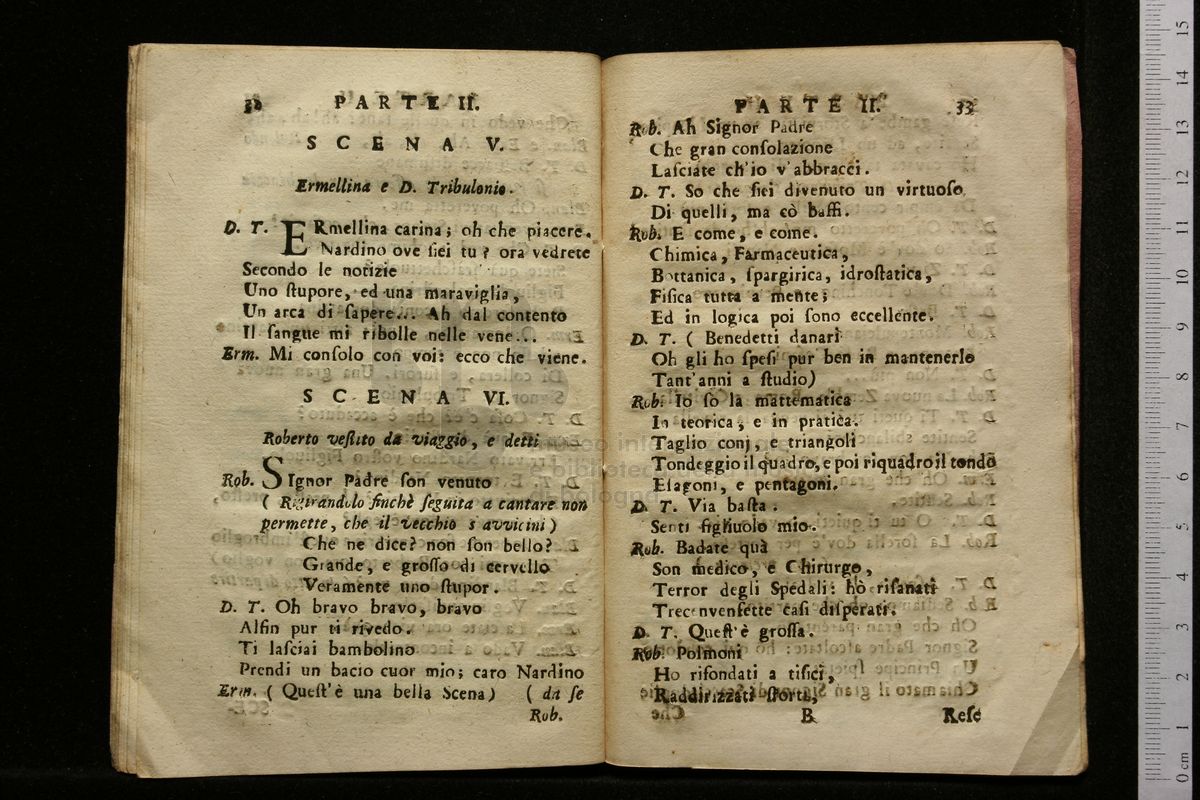 32 PARTE II.
SCENA V.
Ermellina e D. Tribulonio.
D. T. ERmellina carina; oh che piacere.
Nardino ove ſiei tu? ora vedrete
Secondo le notizie
Uno ſtupore, ed una maraviglia,
Un arca di ſapere... Ah dal contento
Il ſangue mi ribolle nelle vene...
Erm. Mi conſolo con voi: ecco che viene.
SCENA VI.
Roberto veſtito da viaggio, e detti
Rob. SIgnor Padre ſon venuto
( Rigirandolo finchè ſeguita a cantare non
permette, che il vecchio s avvicini )
Che ne dice? non ſon bello?
Grande, e groſſo di cervello
Veramente uno ſtupor.
D. T. Oh bravo bravo, bravo
Alfin pur ti rivedo.
Ti laſciai bambolino
Prendi un bacio cuor mio; caro Nardino
Erm. ( Queſt'è una bella Scena) ( da ſe
Rob.
PARTE II. 33
Rob. Ah Signor Padre
Che gran conſolazione
Laſciate ch'io v'abbracci.
D. T. So che ſiei divenuto un virtuoſo
Di quelli, ma cò baffi.
Rob. E come, e come.
Chimica, Farmaceutica,
Bottanica, ſpargirica, idroſtatica,
Fiſica tutta a mente;
Ed in logica poi ſono eccellente.
D. T. ( Benedetti danari
Oh gli ho ſpeſi pur ben in mantenerlo
Tant'anni a ſtudio)
Rob. Io ſo la mattematica
In teorica, e in pratica.
Taglio conj, e triangoli
Tondeggio il quadro, e poi riquadro il tondo
Eſagoni, e pentagoni.
D. T. Via baſta.
Senti figliuolo mio.
Rob. Badate quà
Son medico, e Chirurgo,
Terror degli Spedali: hò riſanati
Trecenvenſette caſi diſperati.
D. T. Queſt'è groſſa.
Rob. Polmoni
Ho rifondati a tiſici,
Raddirizzati ſtorti,
B Reſe